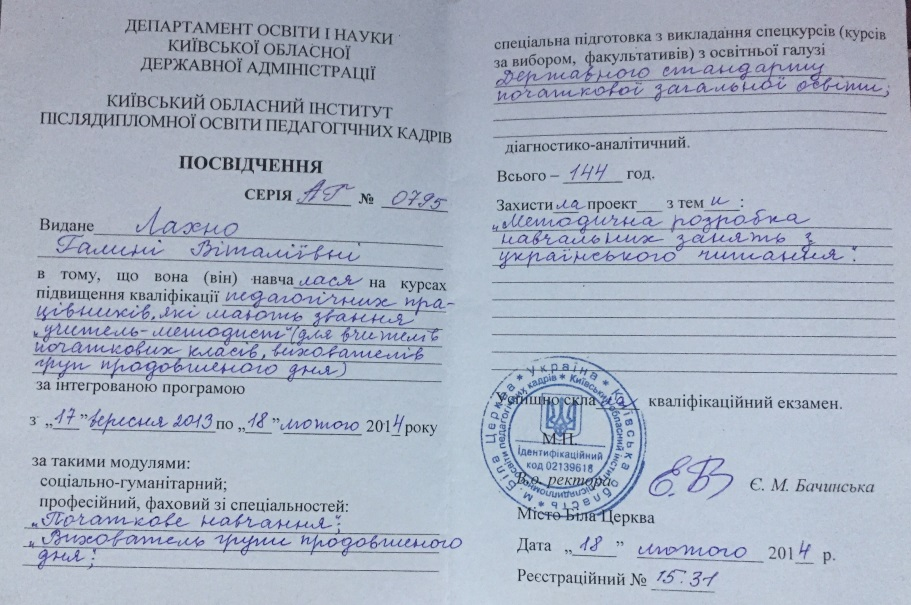 ДЕПАРТАМЕНТ ОСВІТИ І НАУКИ
КИЇВСЬКОЇ ОБЛАСНОЇ
ДЕРЖАВНОЇ АДМІНІСТРАЦІЇ
КИЇВСЬКИЙ ОБЛАСНИЙ ІНСТИТУТ
ПІСЛЯДИПЛОМНОЇ ОСВІТИ ПЕДАГОГІЧНИХ КАДРІВ
ПОСВІДЧЕННЯ
СЕРІЯ АГ № 0795
Видане Лахно
Галині Віталіївні
в тому, що вона (він) навчалася на курсах
підвищення кваліфікації педагогічних пра-
цівників, які мають звання
„учитель-методист" (для вчителів
початкових класів, вихователів
груп продовженого дня)
за інтегрованою програмою
з „17" вересня 2013 по „18" лютого 2014 року
за такими модулями:
соціально-гуманітарний;
професійний, фаховий зі спеціальностей:
„Початкове навчання";
„Вихователь групи продовженого
дня";
спеціальна підготовка з викладання спецкурсів (курсів
за вибором, факультативів) з освітньої галузі
Державного стандарту
початкової загальної освіти;
діагностико-аналітичний.
Всього – 144 год.
Захистила проект з теми :
„Методична розробка
навчальних занять з
українського читання".
Успішно склала кваліфікаційний екзамен.
М.П.
В.о. ректора Є. М. Бачинська
Місто Біла Церква
Дата „18" лютого 2014 р.
Реєстраційний № 15.31
Україна * Київська область * м. Біла Церква *
Київський обласний інститут післядипломної освіти педагогічних кадрів *
Ідентифікаційний
код 02139618